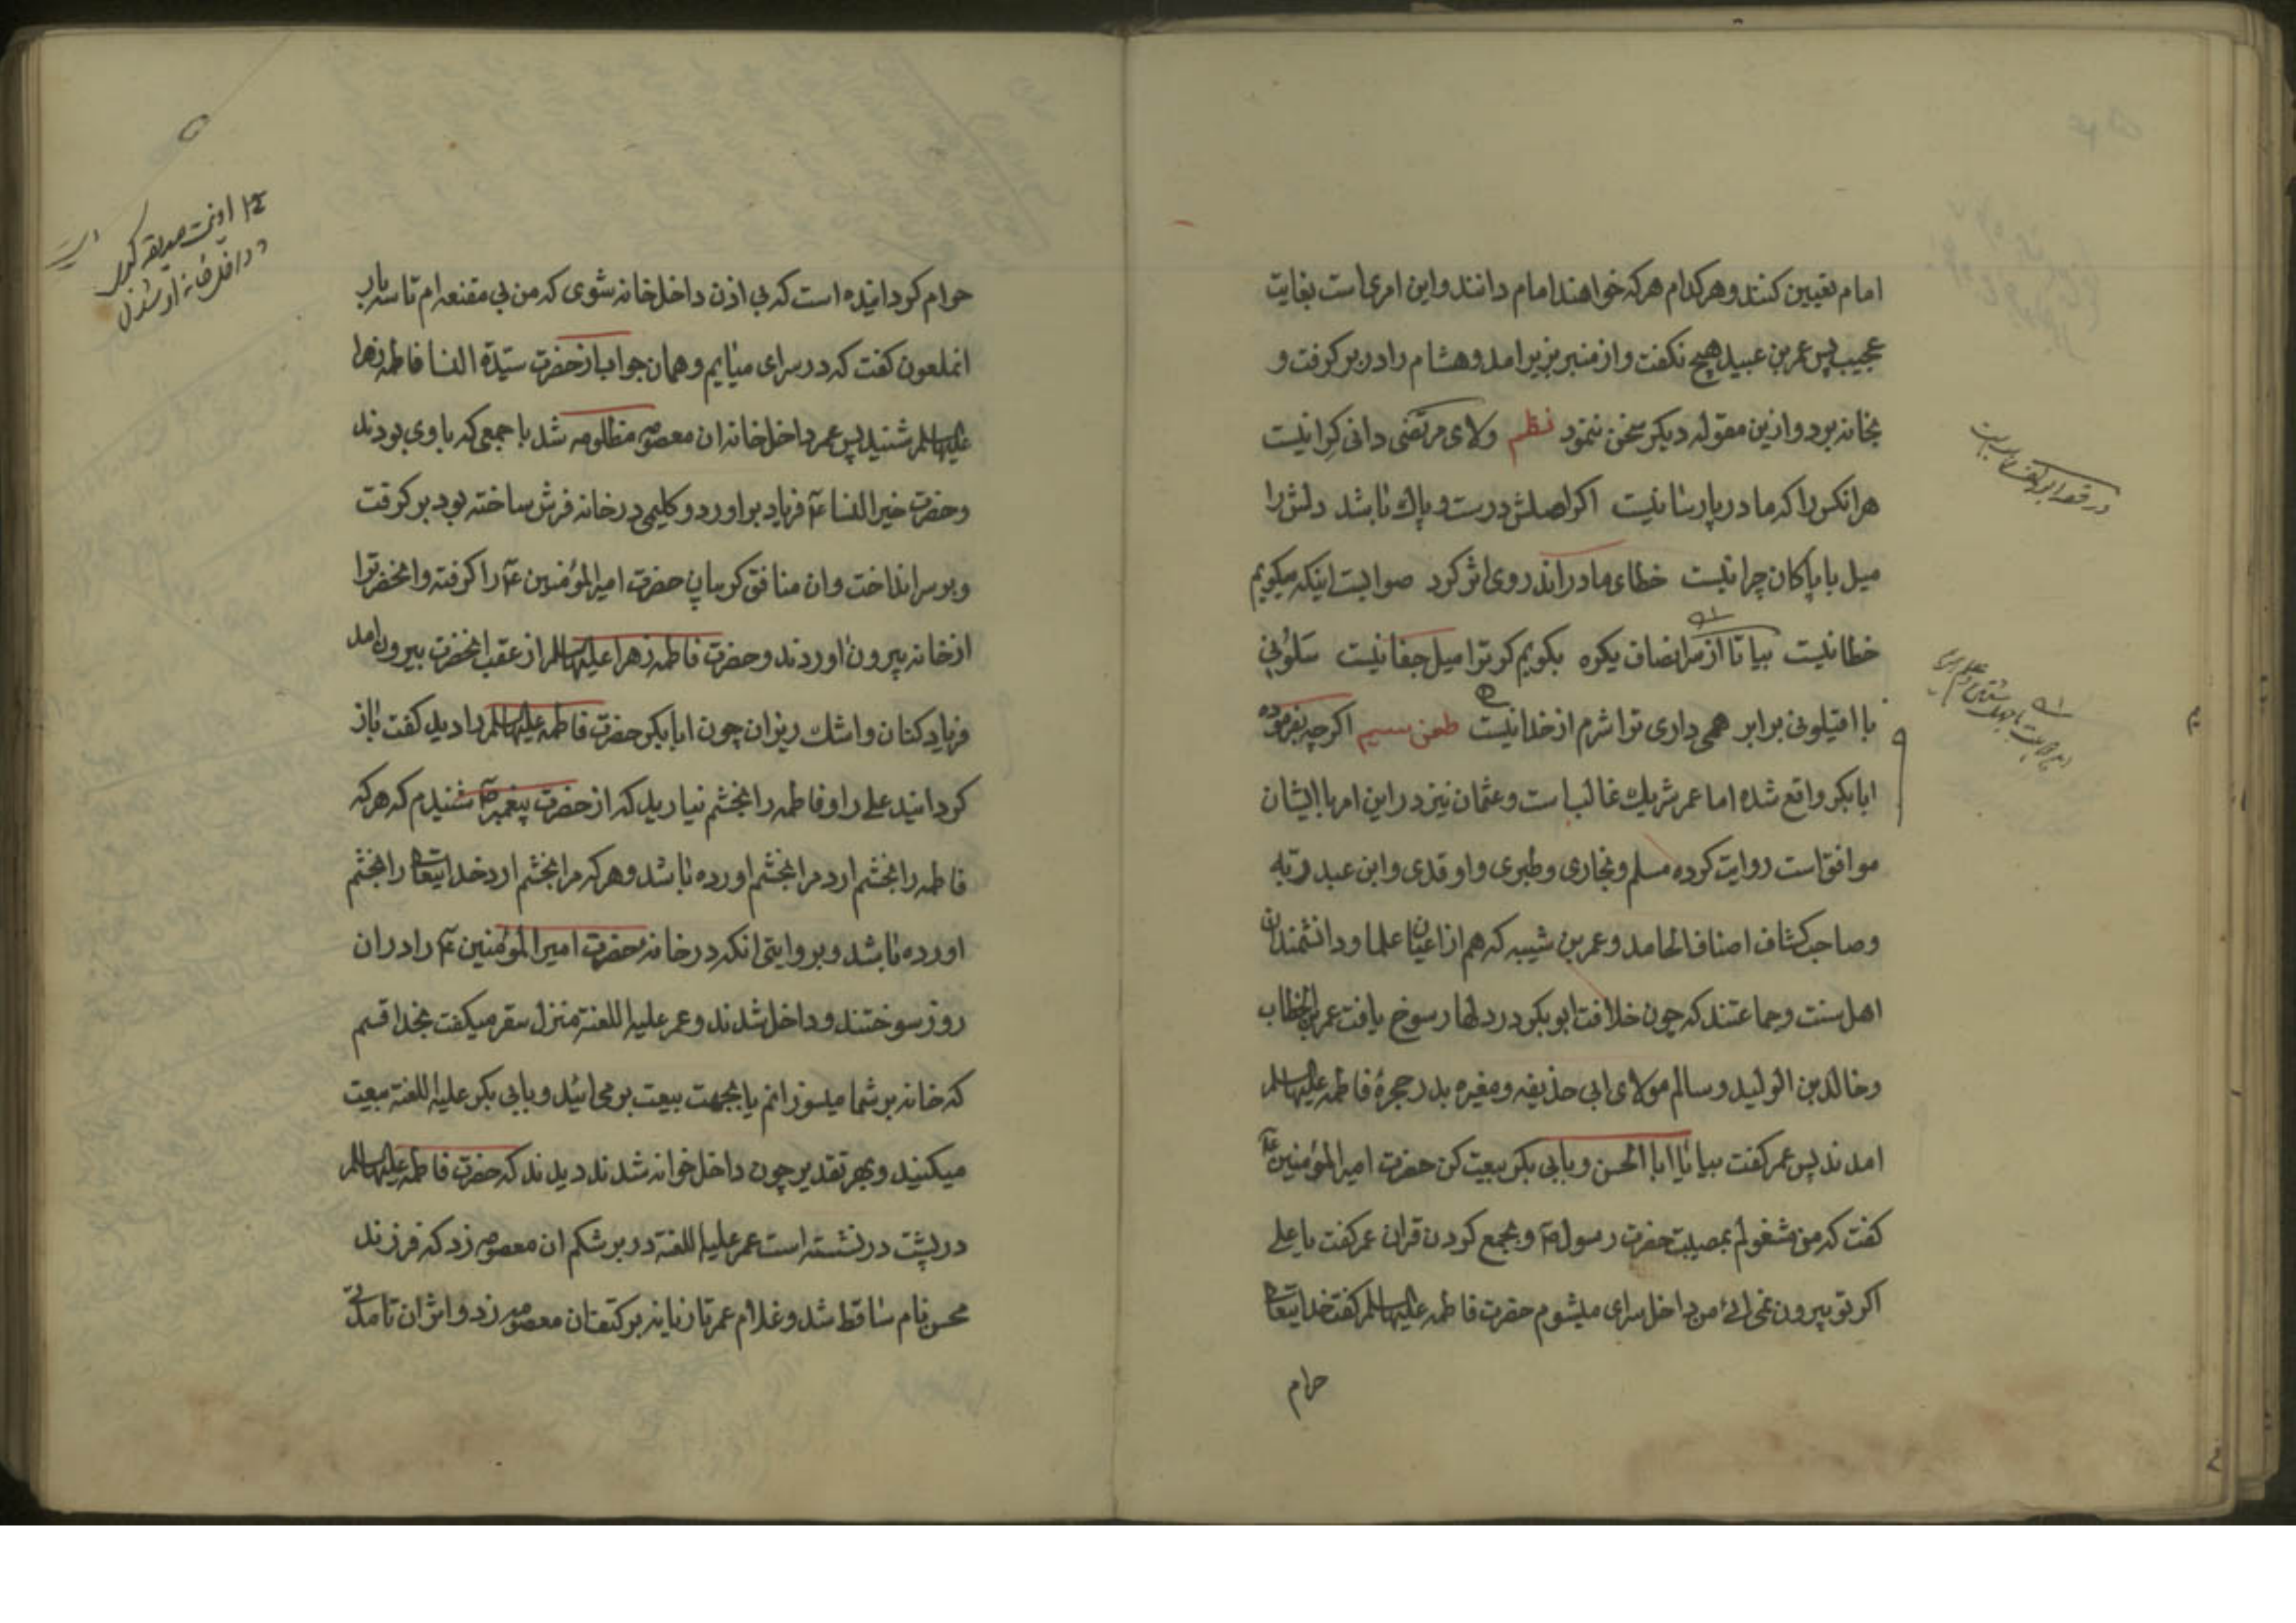 امام تعیین کنند و هر کدام هر که خواهند امام دانند و این امری است بغایت
عجیب پس عمر بن عبید هیچ نکفت و از منبر بزیر امد و هشام را در بر کرفت و
بخانه برد و ازین مقوله دیکر سخن ننمود نظم ولای مرتضی دانی کرا نیست
هر انکس را که مادر پارسا نیست اکر اصلش درست و پاک باشد دلش را
میل با پاکان چرا نیست خطای مادر اندر وی اثر کرد صوابست اینکه میکویم
خطا نیست بیا تا از سر انصاف یکره بکویم کر ترا میل جفا نیست سلونی
با اقیلونی برابر همی داری ترا شرم از خدا نیست طعن سیم اکرچه بفرموده
ابابکر واقع شده اما عمر شریک غالب است و عثمان نیز در این امر با ایشان
موافق است روایت کرده مسلم و بخاری و طبری و اوقدی و ابن عبد ربه
وصاحب کشاف اصناف المحامد و عمر بن شیبه که هم از اعیان علما و دانشمندان
اهل سنت و جماعتند که چون خلافت ابوبکر در دلها رسوخ یافت عمر بن الخطاب
و خالد بن الولید و سالم مولای ابی حذیفه و مغیره بدر حجرهٔ فاطمه علیها السلم
امدند پس عمر کفت بیا یا ابا الحسن و بابی بکر بیعت کن حضرت امیر المؤمنین ع
کفت که من مشغولم بمصیبت حضرت رسول ص و بجمع کردن قران عمر کفت یا علی
اکر تو بیرون نمی ائی من داخل سرای میشوم حضرت فاطمه علیها السلم کفت خدایتعالی
حرام
حرام کردانیده است که بی اذن داخل خانه شوی که من بی مقنعه ام تا سه بار
انملعون کفت که در سرای میایم و همان جواب از حضرت سیدة النسا فاطمه زهرا
علیها السلم شنید پس عمر داخل خانه ان معصومه مظلومه شد با جمعی که با وی بودند
و حضرت خیر النسا ع فریاد براورد و کلیمی در خانه فرش ساخته بود بر کرفت
و بر سر انداخت و ان منافق کریبان حضرت امیر المؤمنین ع را کرفته و انحضرترا
از خانه بیرون اوردند و حضرت فاطمه زهرا علیها السلم از عقب انحضرت بیرون امد
فریاد کنان و اشک ریزان چون ابابکر حضرت فاطمه علیها السلم را دید کفت باز
کردانید علی را و فاطمه را بخشم نیارید که از حضرت پیغمبر ص شنیدم که هر که
فاطمه را بخشم ارد مرا بخشم اورده باشد و هر که مرا بخشم ارد خدایتعالی را بخشم
اورده باشد و بروایتی انکه در خانه حضرت امیر المؤمنین ع را در ان
روز سوختند و داخل شدند و عمر علیه اللعنة منزل سقر میکفت بخدا قسم
که خانه بر شما میسوزانم یا بجهت بیعت بر می ائید و بابی بکر علیه اللعنة بیعت
میکنید و بهر تقدیر چون داخل خوانه شدند دیدند که حضرت فاطمه علیها السلم
در پشت در نشسته است عمر علیه اللعنة در بر شکم ان معصومه زد که فرزند
محسن نام ساقط شد و غلام عمر تازیانه بر کتفتان معصومه زد و اثر ان تا مدتی